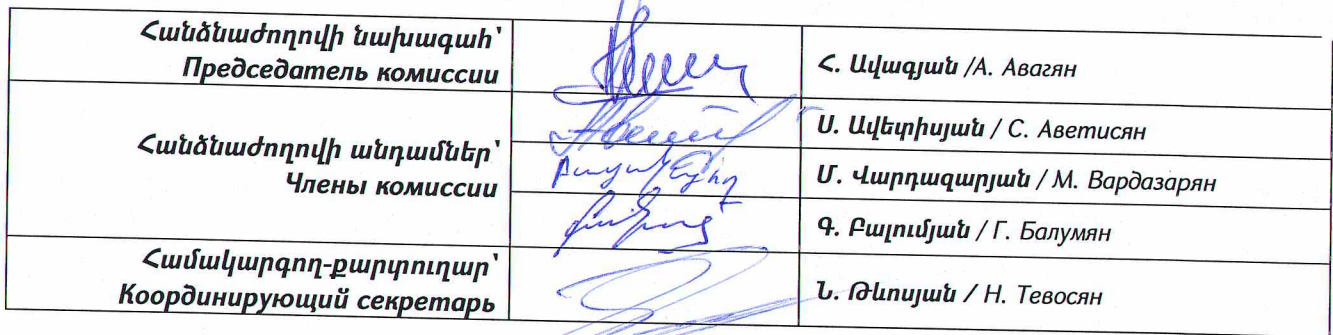 Հանձնաժողովի նախագահ՝
Председатель комиссии
Հ. Ավագյան /А. Авагян
Հանձնաժողովի անդամներ՝
Члены комиссии
Ս. Ավետիսյան / С. Аветисян
Մ. Վարդազարյան / М. Вардазарян
Գ. Բալումյան / Г. Балумян
Համակարգող-քարտուղար՝
Координирующий секретарь
Ն. Թևոսյան / Н. Тевосян